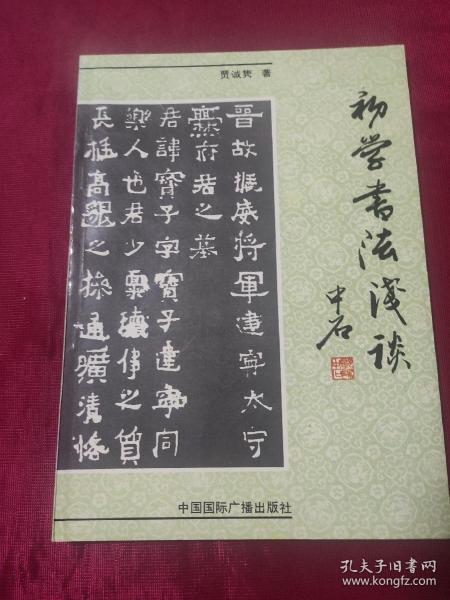 贾诚隽 著
初学书法浅谈
中石
晋故振威将軍建寧太守
爨府君之墓
君諱寶子字寶子建寧同
樂人也君少稟瓌偉之質
長挺高邈之操通曠清恪
中国国际广播出版社
孔夫子旧书网
www.kongfz.com